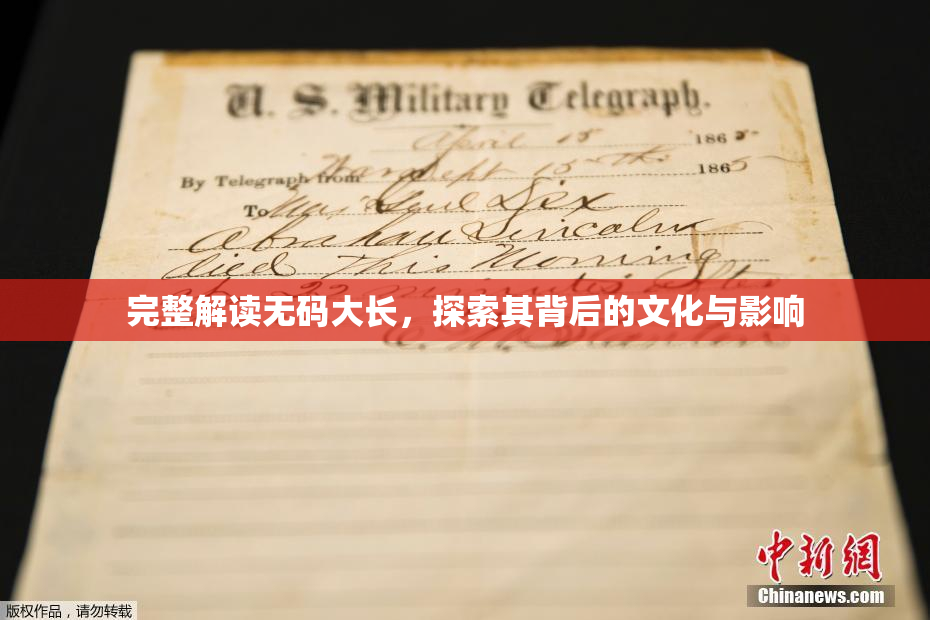 U. S. Military Telegraph.
April 15 1865
By Telegraph from War Dept 15th 1865
To Maj Genl Dix
Abraham Lincoln
died This Morning
at 22 minutes after
完整解读无码大长，探索其背后的文化与影响
E. M. Stanton
中新网
Chinanews.com
版权作品，请勿转载